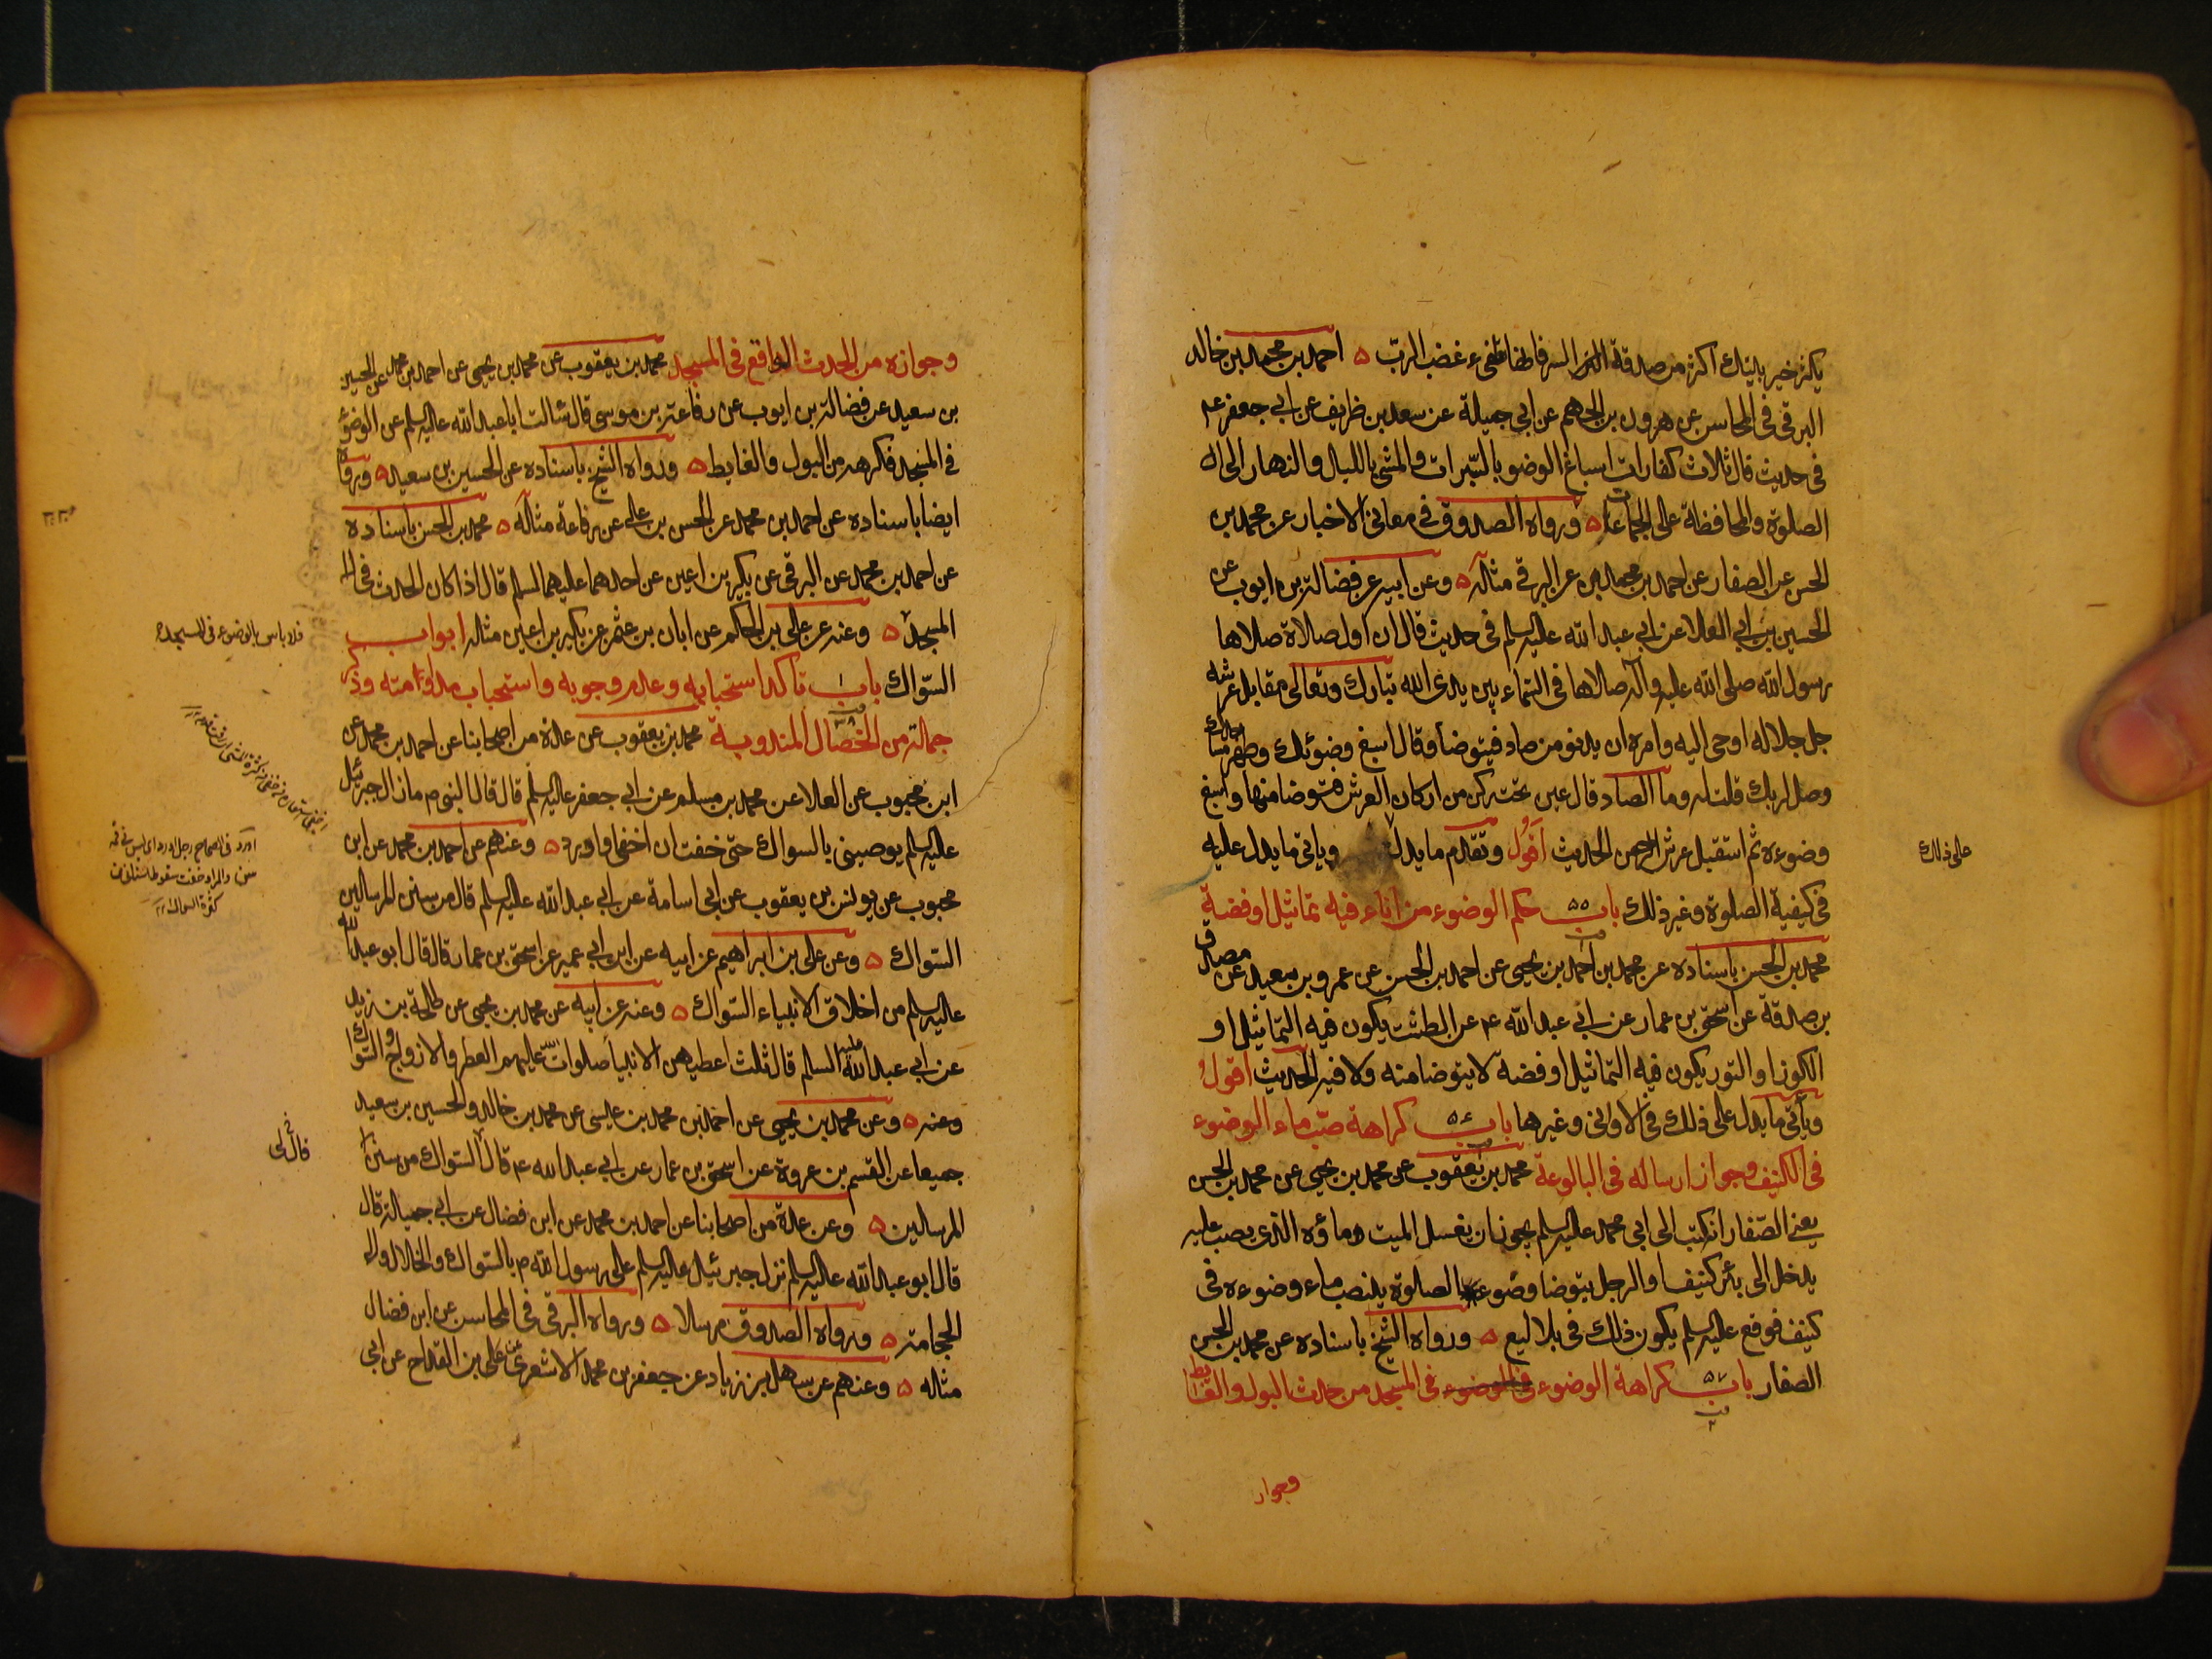 يكثر خير بيتك اكثر من صدقة السر فانها تطفئ غضب الرب ه احمد بن محمد بن خالد
البرقي في المحاسن عن هرون بن الجهم عن ابي جميلة عن سعد بن ظريف عن ابي جعفر ع
في حديث قال ثلاث كفارات اسباغ الوضو بالسبرات والمشي بالليل والنهار الى ال
الصلوة والمحافظة على الجماعات ه ورواه الصدوق في معاني الاخبار عن محمد بن
الحسن عن الصفار عن احمد بن محمد بن عن البرقي مثله ه وعن ابيه عن فضالة بن ايوب عن
الحسين بن ابي العلا عن ابي عبد الله عليه السلم في حديث قال ان اول صلاة صلاها
رسول الله صلى الله عليه وآله صلاها في السماء بين يدي الله تبارك وتعالى مقابل عرشه
جل جلاله اوحى اليه وامره ان يدنو من صاد فيتوضأ وقال اسبغ وضوئك وطهر مساجدك
وصل لربك قلت له وما الصاد قال عين تحت ركن من اركان العرش فتوضا منها واسبغ
وضوءه ثم استقبل عرش الرحمن الحديث اقول وتقدم ما يدل ويأتي ما يدل عليه
على ذلك
في كيفية الصلوة وغير ذلك باب ٥٥ حكم الوضوء من اناء فيه تماثيل او فضة
محمد بن الحسن باسناده عن محمد بن احمد بن يحيى عن احمد بن الحسن عن عمرو بن سعيد عن مصدق
بن صدقة عن اسحق بن عمار عن ابي عبد الله ع عن الطشت يكون فيه التماثيل او
الكوز او التور يكون فيه التماثيل او فضة لا يتوضا منه ولا فيه الحديث اقول
ويأتي ما يدل على ذلك في الاواني وغيرها باب ٥٦ كراهة صب ماء الوضوء
في الكنيف وجواز ارساله في البالوعة محمد بن يعقوب عن محمد بن يحيى عن محمد بن الحسن
يعني الصفار انه كتب الى ابي محمد عليه السلم يجوز ان يغسل الميت وماؤه الذي يصب عليه
يدخل الى بئر كنيف او الرجل يتوضا وضوء الصلوة يصب ماء وضوءه في
كنيف فوقع عليه السلم يكون ذلك في بلاليع ه ورواه الشيخ باسناده عن محمد بن الحسن
الصفار باب ٥٧ كراهة الوضوء في المسجد من حدث البول والغايط
وجواز
وجوازه من الحدث الواقع في المسجد محمد بن يعقوب عن محمد بن يحيى عن احمد بن محمد عن الحسين
بن سعيد عن فضالة بن ايوب عن رفاعة بن موسى قال سئالت ابا عبد الله عليه السلم عن الوضؤ
في المسجد فكرهه من البول والغايط ه ورواه الشيخ باسناده عن الحسين بن سعيد ه ورواه
ايضا باسناده عن احمد بن محمد عن الحسن بن علي عن رفاعة مثله ه محمد بن الحسن باسناده
عن احمد بن محمد عن البرقي عن بكير بن اعين عن احدهما عليهما السلم قال اذا كان الحدث في ال
المسجد ه وعنه عن علي بن الحكم عن ابان بن عثمن عن بكير بن اعين مثله ابواب
فلا باس بالوضوء في المسجد
السواك باب ١ تاكد استحبابه وعدم وجوبه واستحباب مداومته وذكر
جملة من الخصال المندوبة محمد بن يعقوب عن عدة من اصحابنا عن احمد بن محمد عن
ابن محبوب عن العلا عن محمد بن مسلم عن ابي جعفر عليه السلم قال قال النبي ص ما زال جبرئيل
عليه السلم يوصيني بالسواك حتى خفت ان اخفى او ادرد ه وعنهم عن احمد بن محمد عن ابن
محبوب عن يونس بن يعقوب عن ابي اسامة عن ابي عبد الله عليه السلم قال من سنن المرسلين
السواك ه وعن علي بن ابراهيم عن ابيه عن ابن ابي عمير عن اسحق بن عمار قال قال ابو عبد الله
عليه السلم من اخلاق الانبياء السواك ه وعنه عن ابيه عن محمد بن يحيى عن طلحة بن زيد
عن ابي عبد الله عليه السلم قال ثلث اعطيهن الانبيا صلوات الله عليهم العطر والازواج والسواك
وعنه ه وعن محمد بن يحيى عن احمد بن محمد بن عيسى عن محمد بن خالد والحسين بن سعيد
جميعا عن القسم بن عروة عن اسحق بن عمار عن ابي عبد الله ع قال السواك من سنن
قال لي
المرسلين ه وعن عدة من اصحابنا عن احمد بن محمد عن ابن فضال عن ابي جميلة قال
قال ابو عبد الله عليه السلم نزل جبرئيل عليه السلم على رسول الله ص بالسواك والخلال وال
الحجامة ه ورواه الصدوق مرسلا ه ورواه البرقي في المحاسن عن ابن فضال
مثله ه وعنهم عن سهل بن زياد عن جعفر بن محمد الاشعري عن علي بن القداح عن ابي